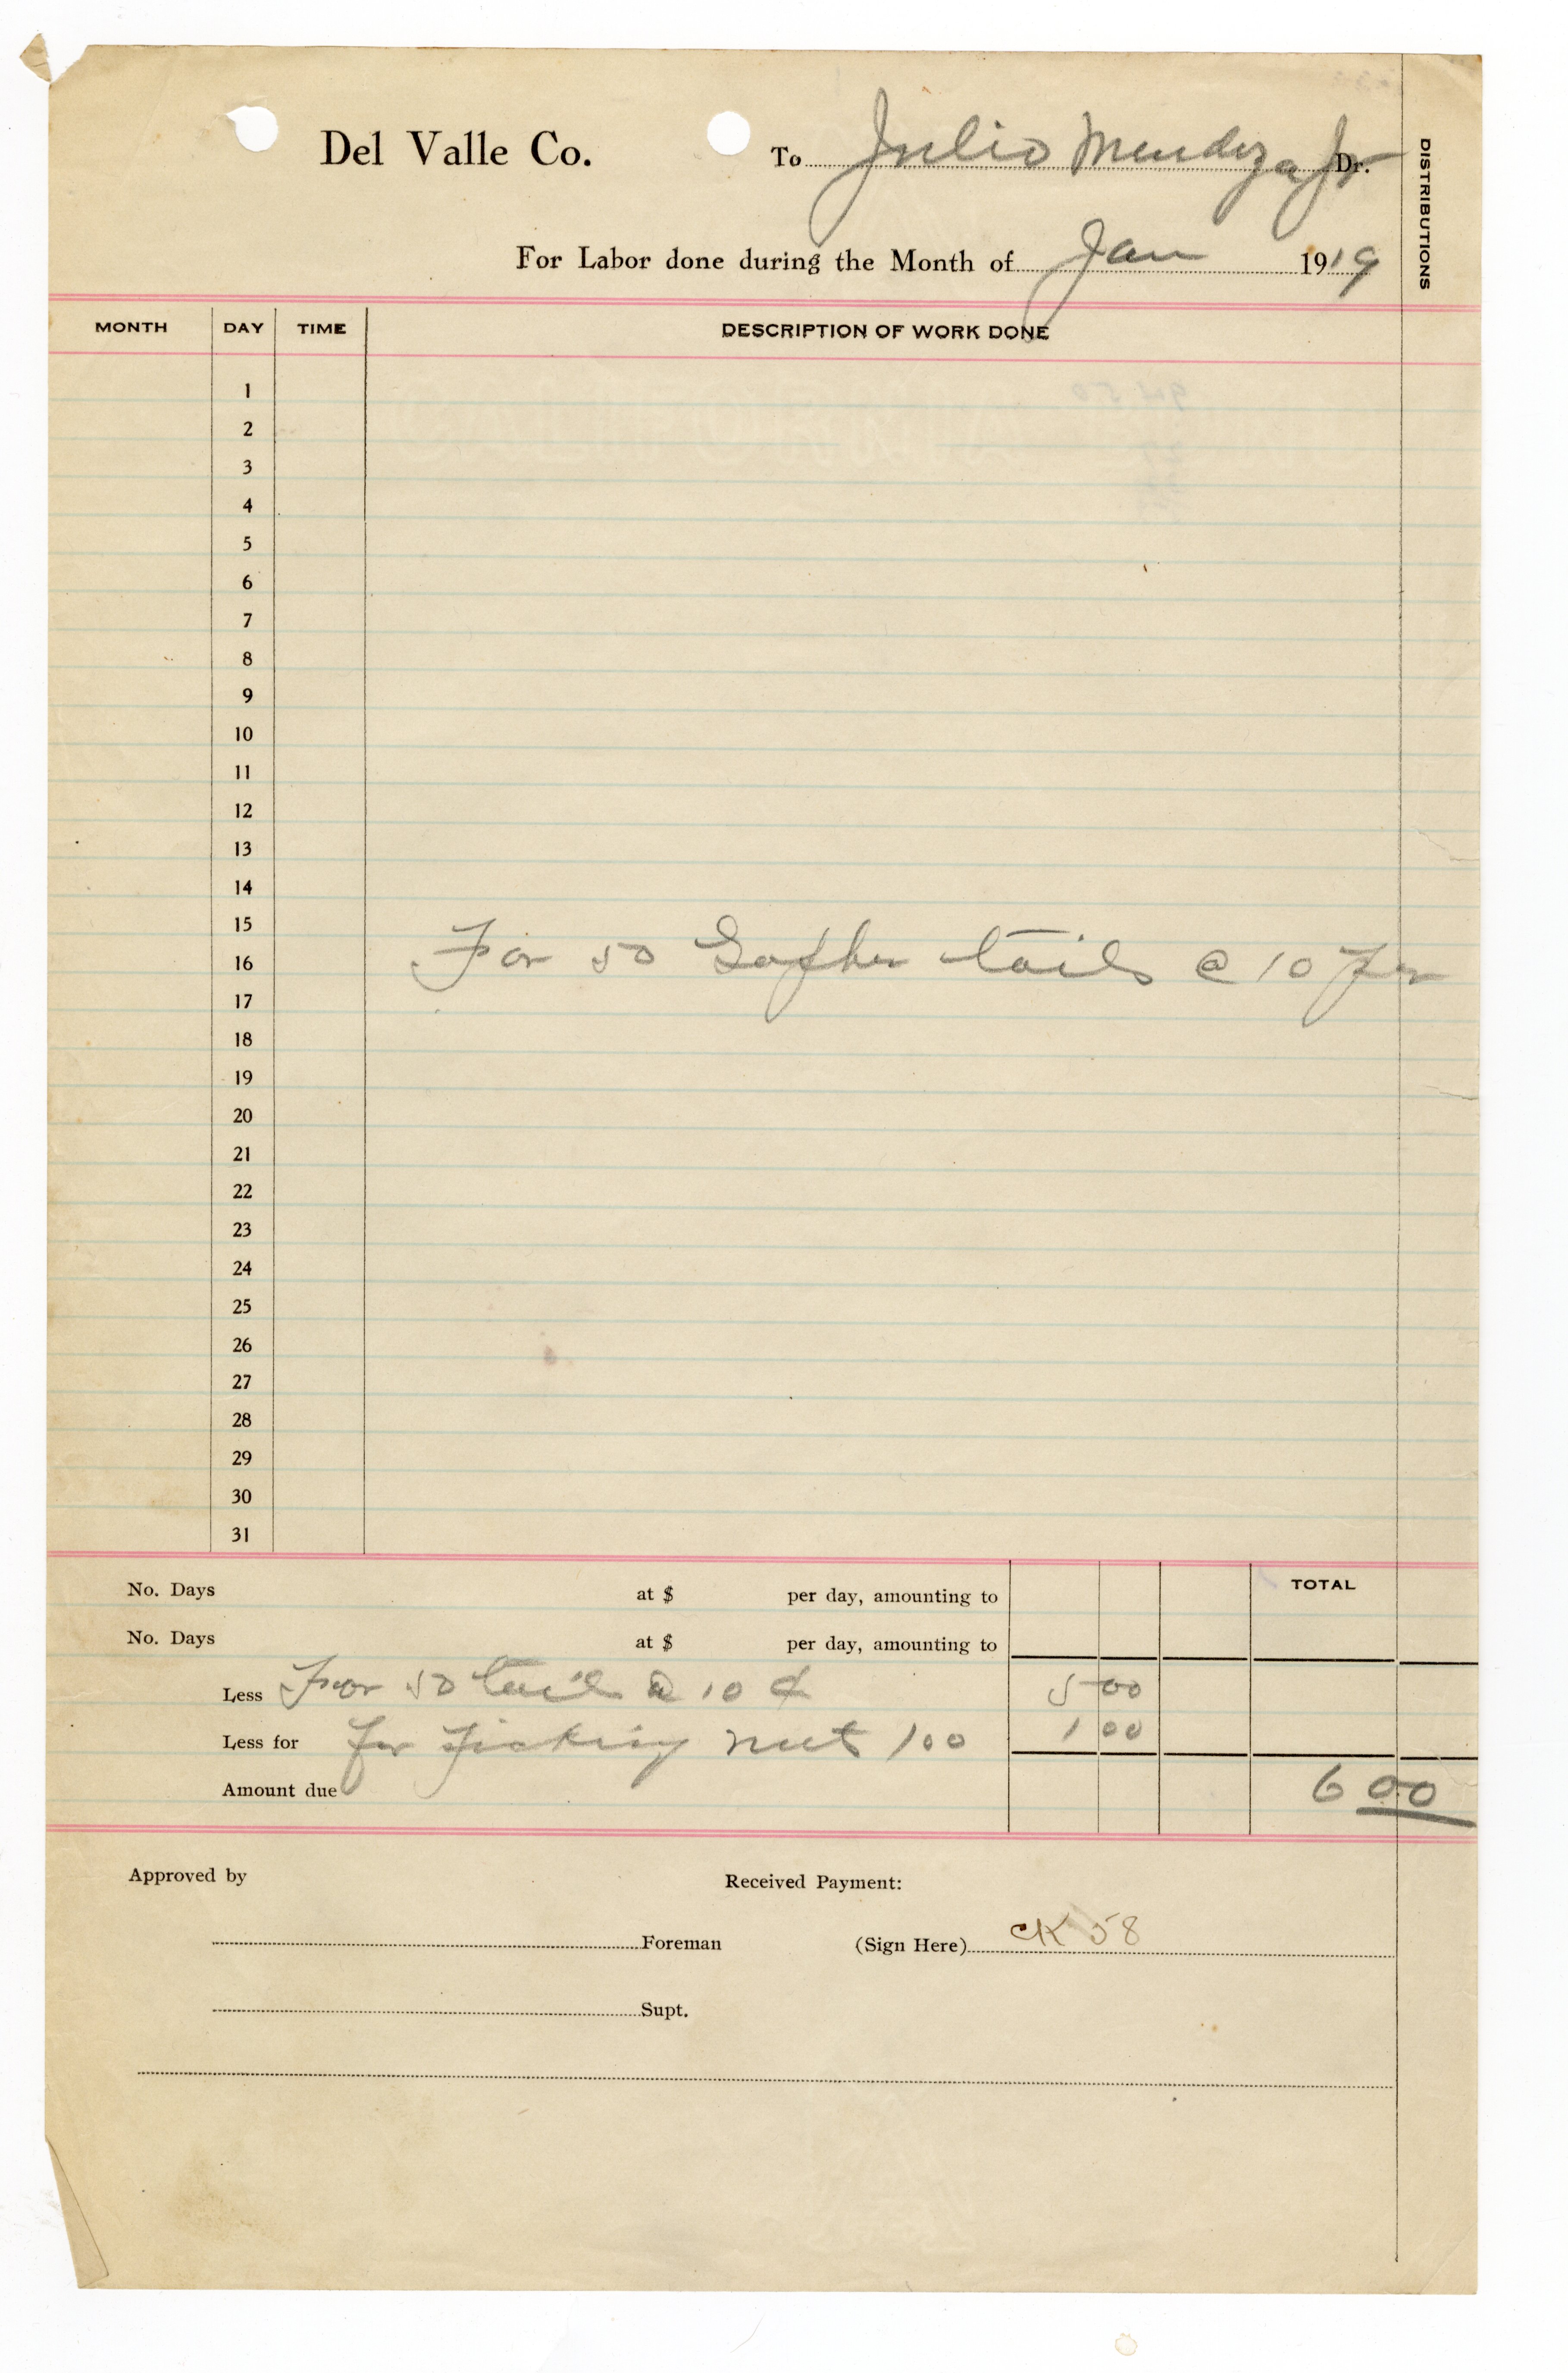 Del Valle Co. To Julio Mendeza Jr Dr.
DISTRIBUTIONS
For Labor done during the Month of Jan 1919
MONTH DAY TIME DESCRIPTION OF WORK DONE
1
2
3
4
5
6
7
8
9
10
11
12
13
14
15
16 For 50 Gopher tails @ 10 per
17
18
19
20
21
22
23
24
25
26
27
28
29
30
31
No. Days at $ per day, amounting to TOTAL
No. Days at $ per day, amounting to
Less For 50 tails @ 10 ¢ 5 00
Less for for picking nuts 1 00 1 00
Amount due 6 00
Approved by Received Payment:
Foreman (Sign Here) CK 58
Supt.